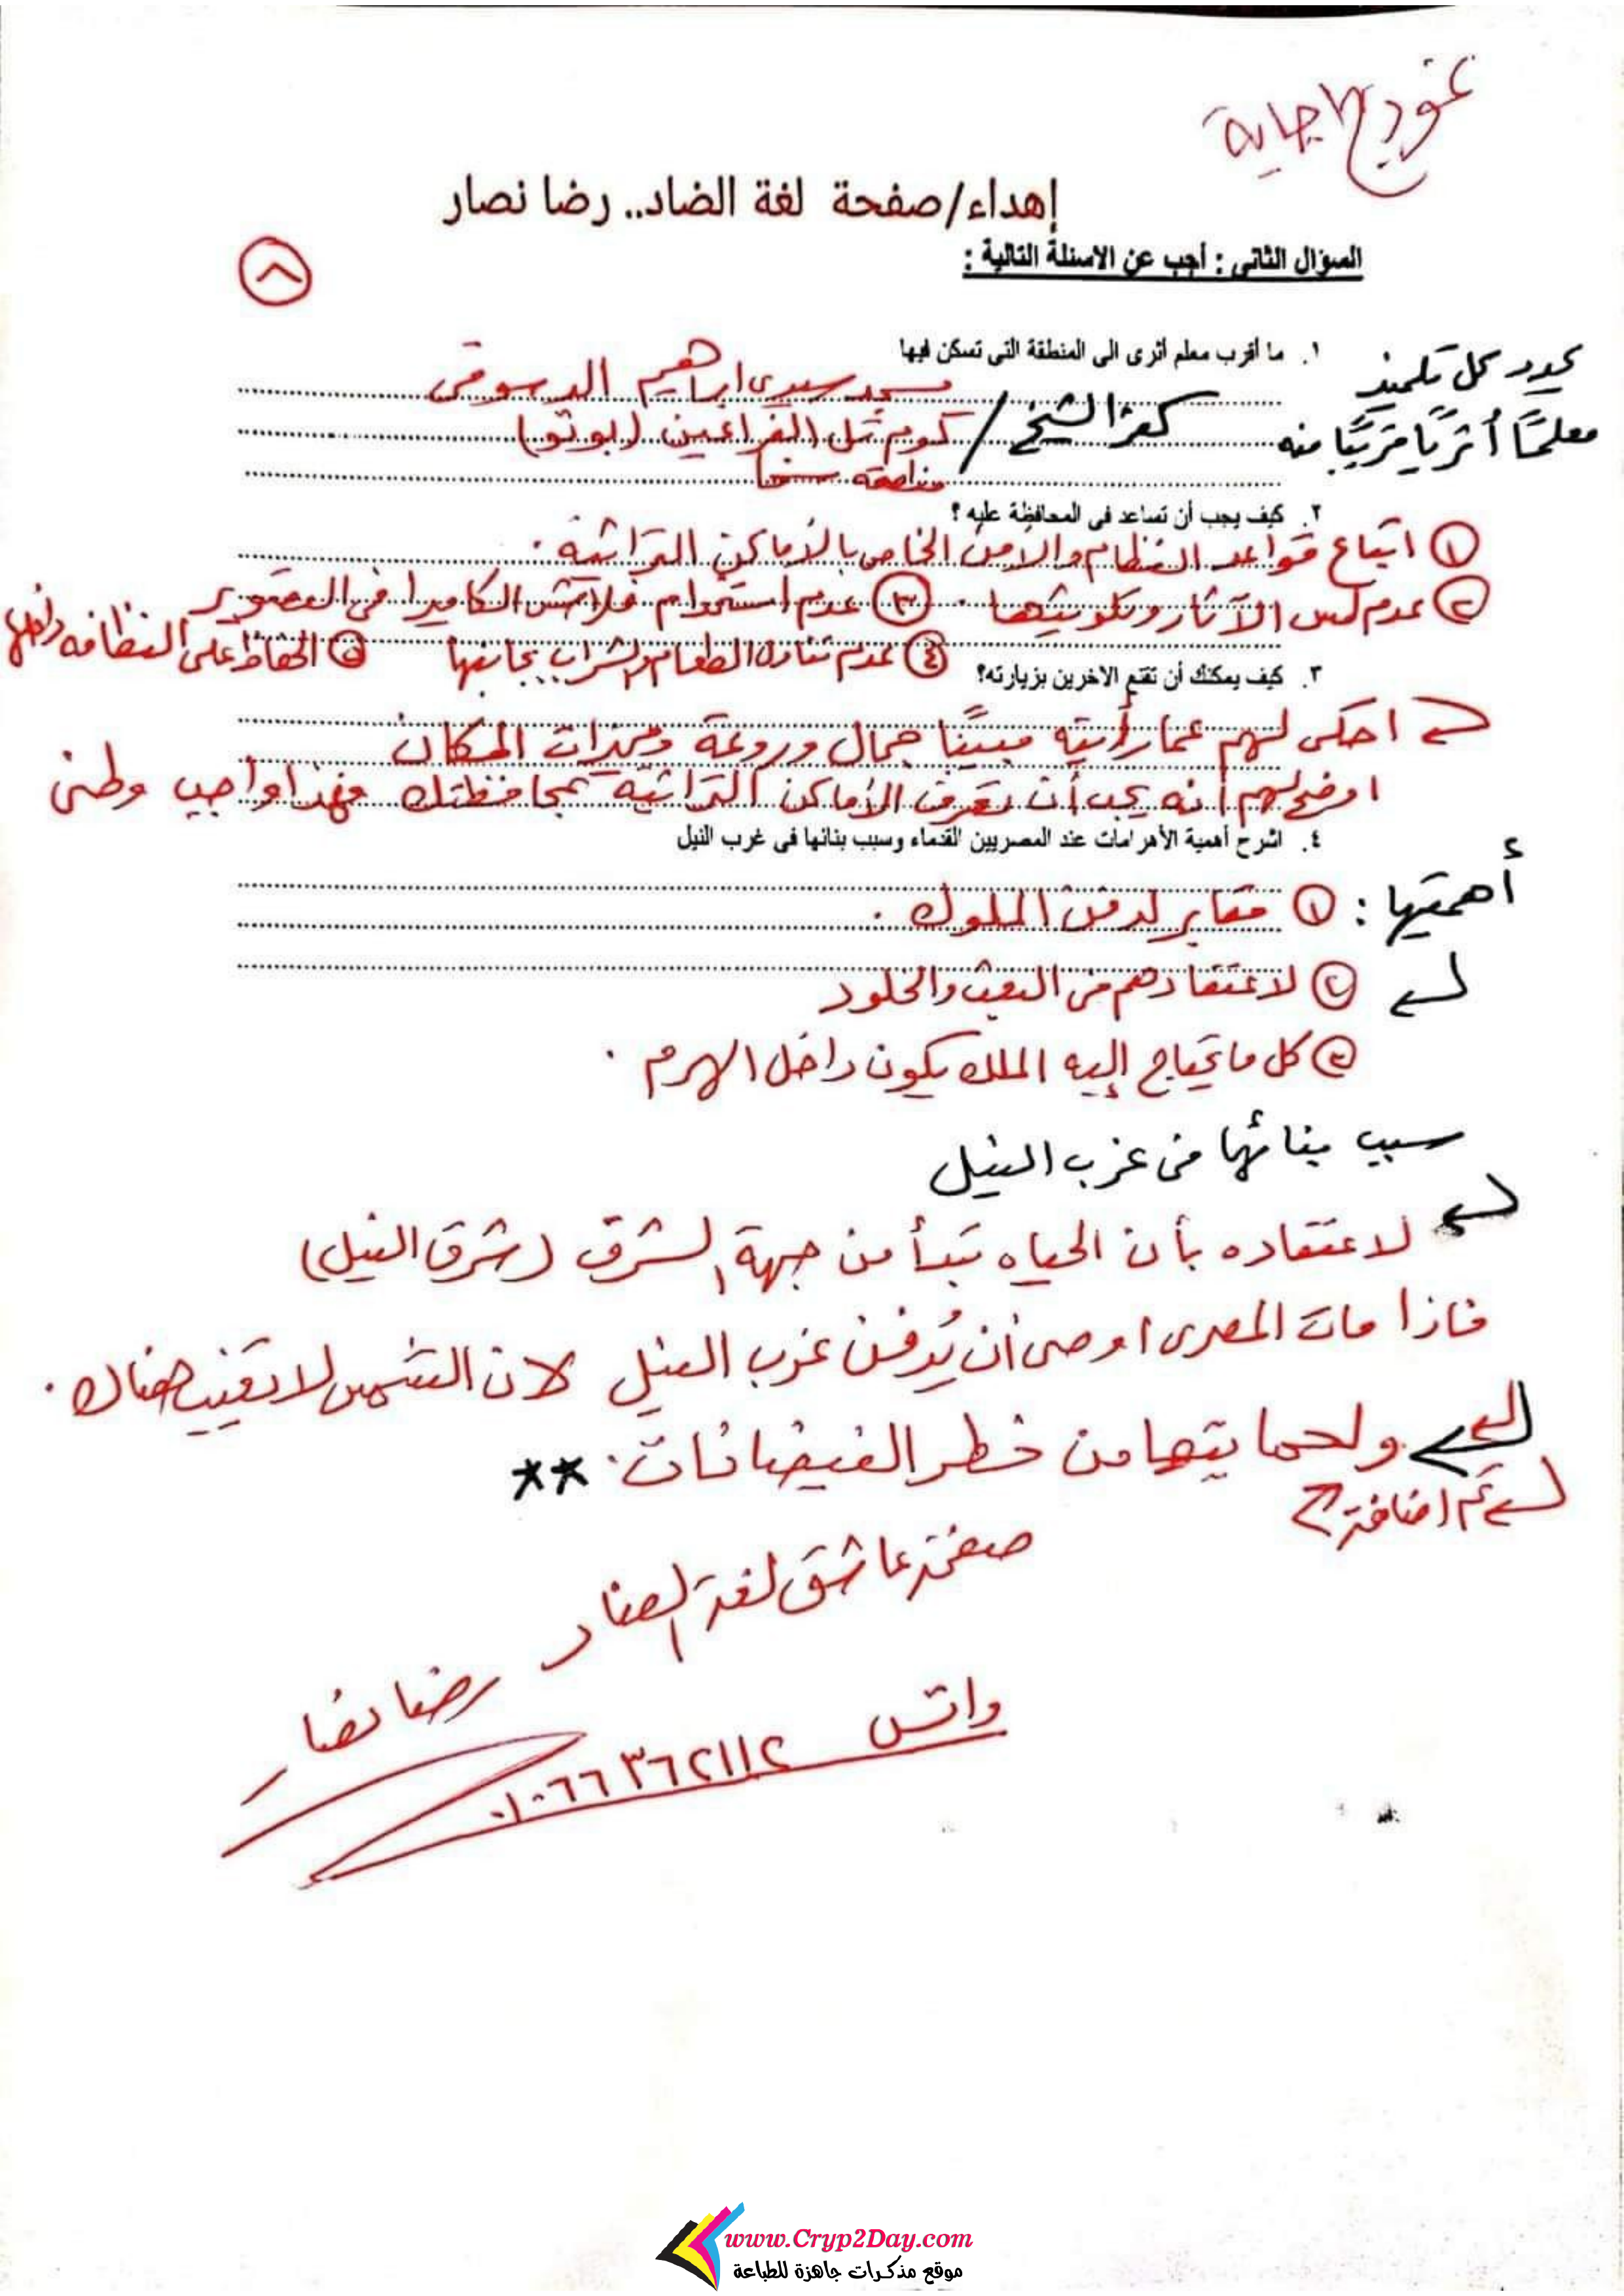 نموذج اجابة
إهداء/صفحة لغة الضاد.. رضا نصار
السؤال الثانى : أجب عن الاسئلة التالية :
٨
١. ما أقرب معلم أثرى الى المنطقة التى تسكن فيها
يحدد كل تلميذ
معلمًا أثريًا قريبًا منه
كفر الشيخ /
مسجد سيدى ابراهيم الدسوقى
كوم تل الفراعين (بوتو)
منطقة سخا
٢. كيف يجب أن تساعد فى المحافظة عليه ؟
١ اتباع قواعد النظام والأمن الخاص بالأماكن التراثية .
٢ عدم لمس الآثار وتلويثها . ٣ عدم استخدام فلاتش الكاميرا فى التصوير
٤ عدم تناول الطعام والشراب بجانبها ٥ الحفاظ على النظافه داخلها
٣. كيف يمكنك أن تقنع الاخرين بزيارته؟
احكى لهم عما رأيته مبينًا جمال وروعة ومميزات المكان
اوضح لهم انه يجب أن تعرف الأماكن التراثية بمحافظتك فهذا واجب وطنى
٤. اشرح أهمية الأهرامات عند المصريين القدماء وسبب بنائها فى غرب النيل
أهميتها : ١ مقابر لدفن الملوك .
٢ لاعتقادهم فى البعث والخلود
٣ كل ما يحتاج إليه الملك يكون داخل الهرم .
سبب بنائها فى غرب النيل
لاعتقاده بأن الحياه تبدأ من جهة الشرق (شرق النيل)
فاذا مات المصرى اوصى أن يُدفن غرب النيل لان الشمس لا تغيب هناك .
ولحمايتها من خطر الفيضانات . **
تم اضافة
صفحة عاشق لغة الضاد
رضا نصار
واتس ٠١٠٦٦٣٦٢١١٢
www.Cryp2Day.com
موقع مذكرات جاهزة للطباعة